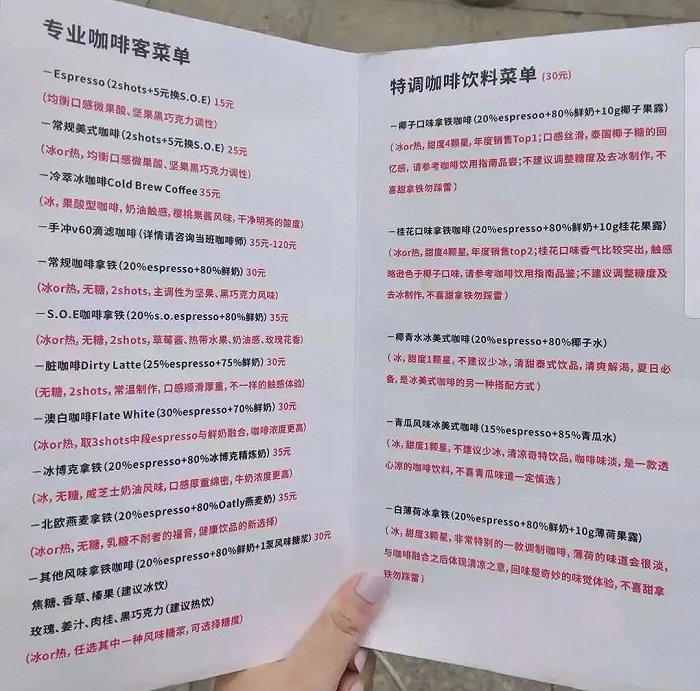 专业咖啡客菜单
－Espresso（2shots+5元换S.O.E）15元
（均衡口感微果酸、坚果黑巧克力调性）
－常规美式咖啡（2shots+5元换S.O.E）25元
（冰or热，均衡口感微果酸、坚果黑巧克力调性）
－冷萃冰咖啡Cold Brew Coffee 35元
（冰，果酸型咖啡，奶油触感，樱桃果酱风味，干净明亮的酸度）
－手冲v60滴滤咖啡（详情请咨询当班咖啡师）35元-120元
－常规咖啡拿铁（20%espresso+80%鲜奶）30元
（冰or热，无糖，2shots，主调性为坚果、黑巧克力风味）
－S.O.E咖啡拿铁（20%s.o.espresso+80%鲜奶）35元
（冰or热，无糖，2shots，草莓酱、热带水果、奶油感、玫瑰花香）
－脏咖啡Dirty Latte（25%espresso+75%鲜奶）30元
（无糖，2shots，常温制作，口感顺滑厚重，不一样的触感体验）
－澳白咖啡Flate White（30%espresso+70%鲜奶）30元
（冰or热，取3shots中段espresso与鲜奶融合，咖啡浓度更高）
－冰博克拿铁（20%espresso+80%冰博克精炼奶）35元
（冰，无糖，咸芝士奶油风味，口感厚重绵密，牛奶浓度更高）
－北欧燕麦拿铁（20%espresso+80%Oatly燕麦奶）35元
（冰or热，无糖，乳糖不耐者的福音，健康饮品的新选择）
－其他风味拿铁咖啡（20%espresso+80%鲜奶+1泵风味糖浆）30元
焦糖、香草、榛果（建议冰饮）
玫瑰、姜汁、肉桂、黑巧克力（建议热饮）
（冰or热，任选其中一种风味糖浆，可选择糖度）
特调咖啡饮料菜单（30元）
－椰子口味拿铁咖啡（20%espresoo+80%鲜奶+10g椰子果露）
（冰or热，甜度4颗星，年度销售Top1；口感丝滑，泰国椰子糖的回
忆感，请参考咖啡饮用指南品尝；不建议调整糖度及去冰制作，不
喜甜拿铁勿踩雷）
－桂花口味拿铁咖啡（20%espresso+80%鲜奶+10g桂花果露）
（冰or热，甜度4颗星，年度销售top2；桂花口味香气比较突出，触感
略逊色于椰子口味，请参考咖啡饮用指南品鉴；不建议调整糖度及
去冰制作，不喜甜拿铁勿踩雷）
－椰青水冰美式咖啡（20%espresso+80%椰子水）
（冰，甜度1颗星，不建议少冰，清甜泰式饮品，清爽解渴，夏日必
备，是冰美式咖啡的另一种搭配方式）
－青瓜风味冰美式咖啡（15%espresso+85%青瓜水）
（冰，甜度1颗星，不建议少冰，清凉奇特饮品，咖啡味淡，是一款透
心凉的咖啡饮料，不喜青瓜味道一定慎选）
－白薄荷冰拿铁（20%espresso+80%鲜奶+10g薄荷果露）
（冰，甜度3颗星，非常特别的一款调制咖啡，薄荷的味道会很淡，
与咖啡融合之后体现清凉之意，回味是奇妙的味觉体验，不喜甜拿
铁勿踩雷）